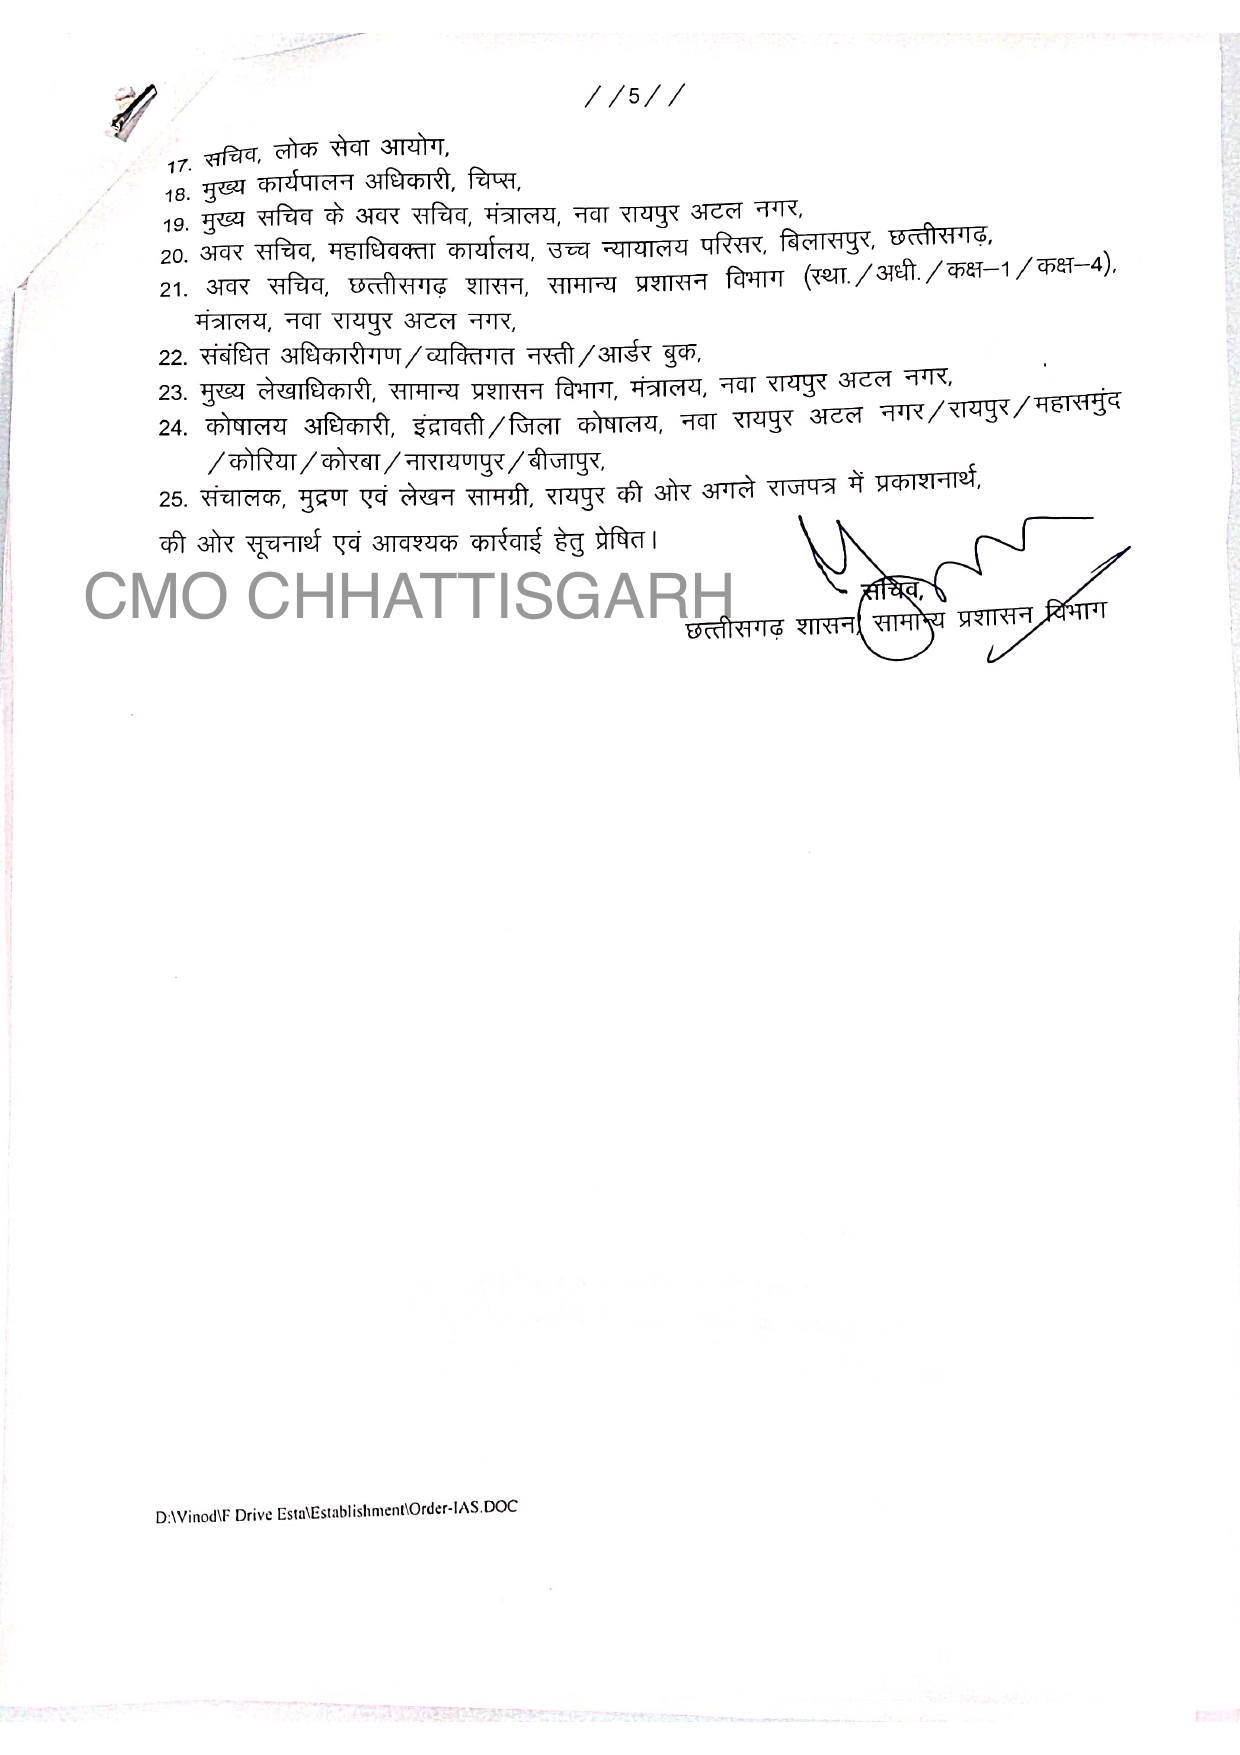 //5//
17. सचिव, लोक सेवा आयोग,
18. मुख्य कार्यपालन अधिकारी, चिप्स,
19. मुख्य सचिव के अवर सचिव, मंत्रालय, नवा रायपुर अटल नगर,
20. अवर सचिव, महाधिवक्ता कार्यालय, उच्च न्यायालय परिसर, बिलासपुर, छत्तीसगढ़,
21. अवर सचिव, छत्तीसगढ़ शासन, सामान्य प्रशासन विभाग (स्था./अधी./कक्ष–1/कक्ष–4),
मंत्रालय, नवा रायपुर अटल नगर,
22. संबंधित अधिकारीगण/व्यक्तिगत नस्ती/आर्डर बुक,
23. मुख्य लेखाधिकारी, सामान्य प्रशासन विभाग, मंत्रालय, नवा रायपुर अटल नगर,
24. कोषालय अधिकारी, इंद्रावती/जिला कोषालय, नवा रायपुर अटल नगर/रायपुर/महासमुंद
/कोरिया/कोरबा/नारायणपुर/बीजापुर,
25. संचालक, मुद्रण एवं लेखन सामग्री, रायपुर की ओर अगले राजपत्र में प्रकाशनार्थ,
की ओर सूचनार्थ एवं आवश्यक कार्रवाई हेतु प्रेषित।
CMO CHHATTISGARH
सचिव,
छत्तीसगढ़ शासन, सामान्य प्रशासन विभाग
D:\Vinod\F Drive Esta\Establishment\Order-IAS.DOC